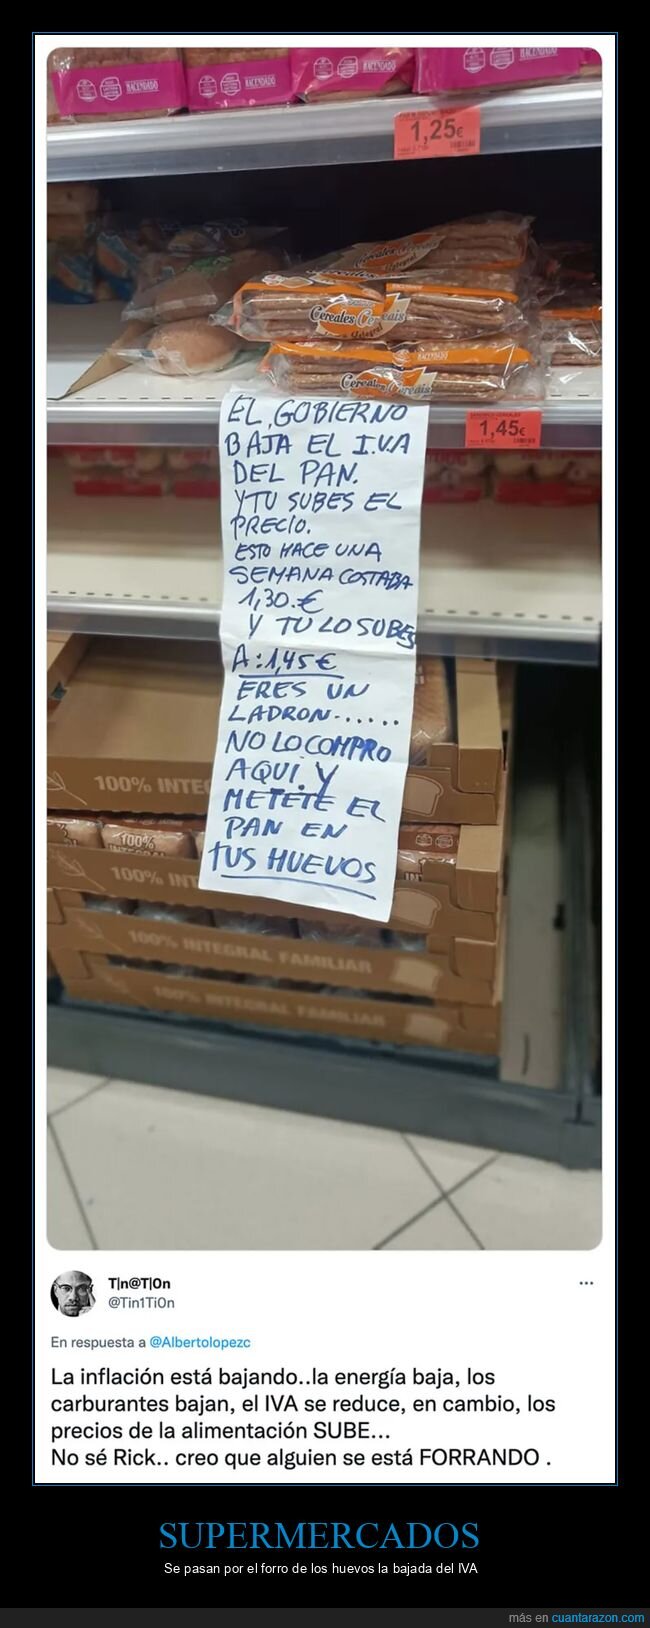 HACENDADO
HACENDADO
HACENDADO
HACENDADO
1,25€
Cereales Cereais
Integral
HACENDADO
Cereales Cereais
1,45€
EL GOBIERNO
BAJA EL I.V.A
DEL PAN.
Y TU SUBES EL
PRECIO.
ESTO HACE UNA
SEMANA COSTABA
1,30.€
Y TU LO SUBES
A:1,45€
ERES UN
LADRON......
NO LO COMPRO
AQUI. Y
METETE EL
PAN EN
TUS HUEVOS
100% INTEG
100%
100% INT
100% INTEGRAL FAMILIAR
100% INTEGRAL FAMILIAR
T|n@T|0n
@Tin1Ti0n
En respuesta a @Albertolopezc
La inflación está bajando..la energía baja, los
carburantes bajan, el IVA se reduce, en cambio, los
precios de la alimentación SUBE...
No sé Rick.. creo que alguien se está FORRANDO .
SUPERMERCADOS
Se pasan por el forro de los huevos la bajada del IVA
más en cuantarazon.com